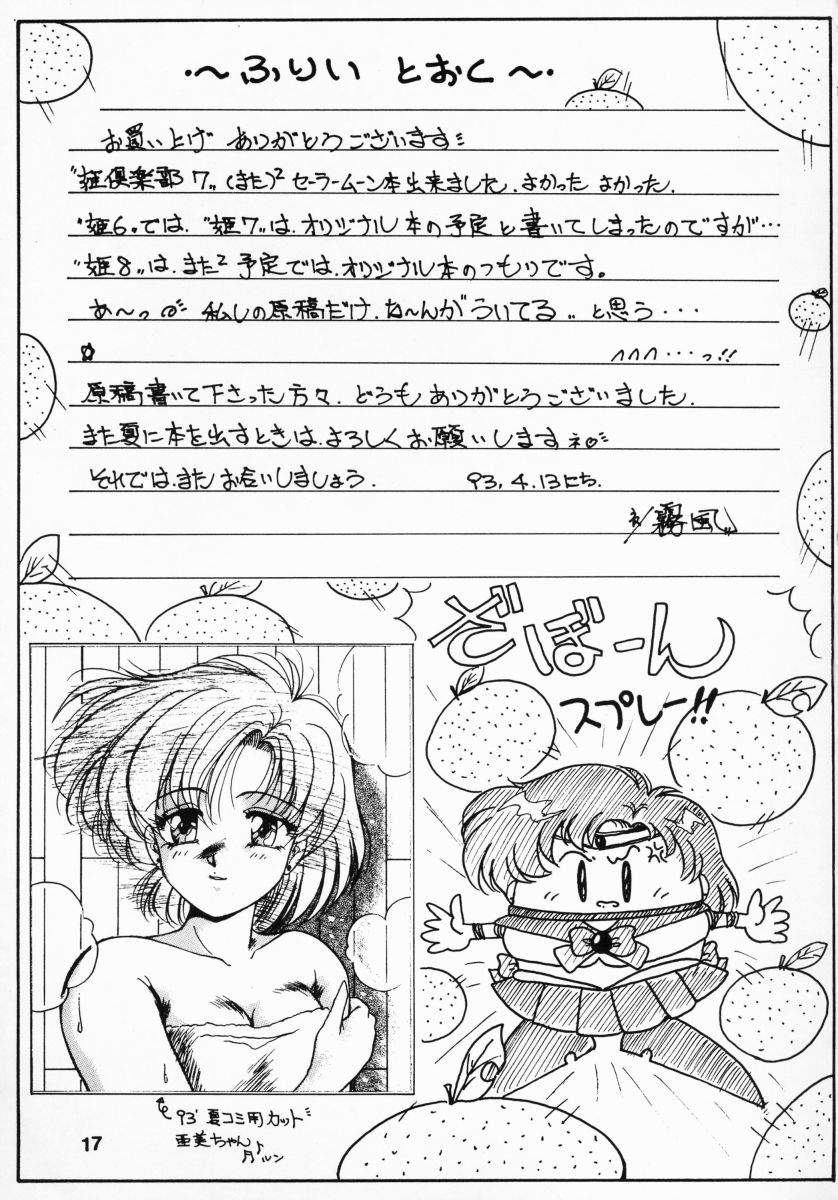 ・～ふりい とおく～・
お買い上げ ありがとうございます
"姫倶楽部7" (また)² セーラームーン本出来ました。よかった よかった。
"姫6"では、"姫7"は、オリジナル本の予定と書いてしまったのですが…
"姫8"は、また² 予定では、オリジナル本のつもりです。
あ～っ 私しの原稿だけ、ね～んがういてる〟と思う・・・
ヘヘヘ・・・っ!!
原稿書いて下さった方々、どうもありがとうございました。
また夏に本を出すときは、よろしくお願いしますネ
それでは、また お会いしましょう。 93, 4, 13にち.
霧風
ざぼーん
スプレー!!
93' 夏コミ用カット
亜美ちゃん
ルン♪
17